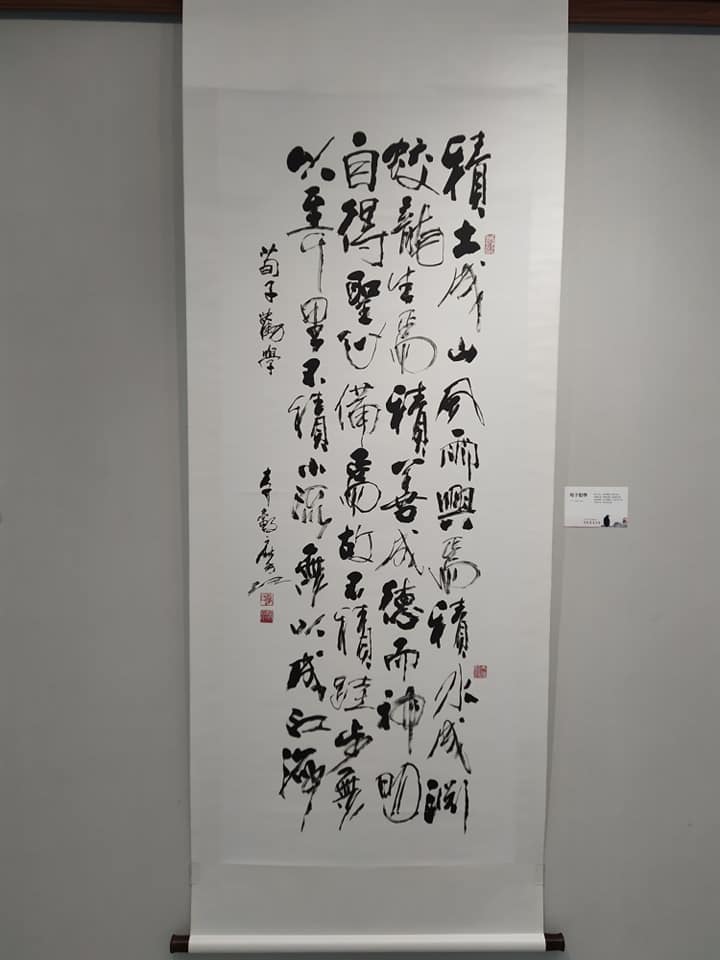 積土成山風雨興焉積水成淵
蛟龍生焉積善成德而神明
自得聖心備焉故不積蹞步無
以至千里不積小流無以成江海
荀子勸學
荀子勸學